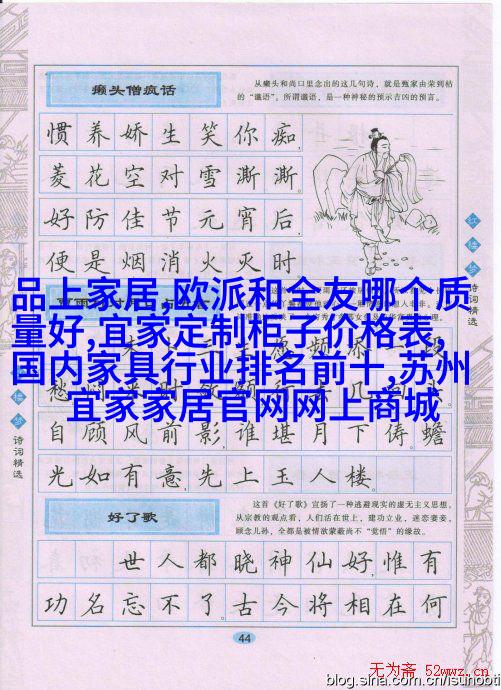 癞头僧疯话
从癞头和尚口里念出的这几句诗，就是甄家由荣到枯
的“谶语”。所谓谶语，是一种神秘的预示吉凶的预言。
惯养娇生笑你痴，
菱花空对雪澌澌。
好防佳节元宵后，
便是烟消火灭时
品上家居,欧派和全友哪个质
量好,宜家定制柜子价格表,
国内家具行业排名前十,苏州
宜家家居官网网上商城
自顾风前影，谁堪月下俦。蟾
光如有意，先上玉人楼。
好了歌
这首《好了歌》宣扬了一种逃避现实的虚无主义思想。
从宗教的观点看，人们活在世上，建功立业，迷恋妻妾，
顾念儿孙，全都是被情欲蒙蔽尚不“觉悟”的缘故。
世人都晓神仙好，惟有
功名忘不了。古今将相在何
44
红楼梦
诗词精选
楼梦
诗词精选
无为斋 52wwz.cn
blog.sina.com.cn/isunobti